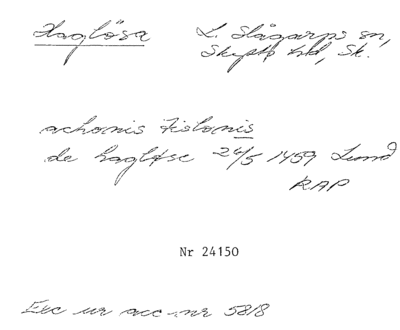 Haglösa L. Slågarps sn,
Skytts hd, Sk.
achonis Tislonis
de hagløse 24/5 1459 Lund
RAP
Nr 24150
Exc ur acc-nr 5818